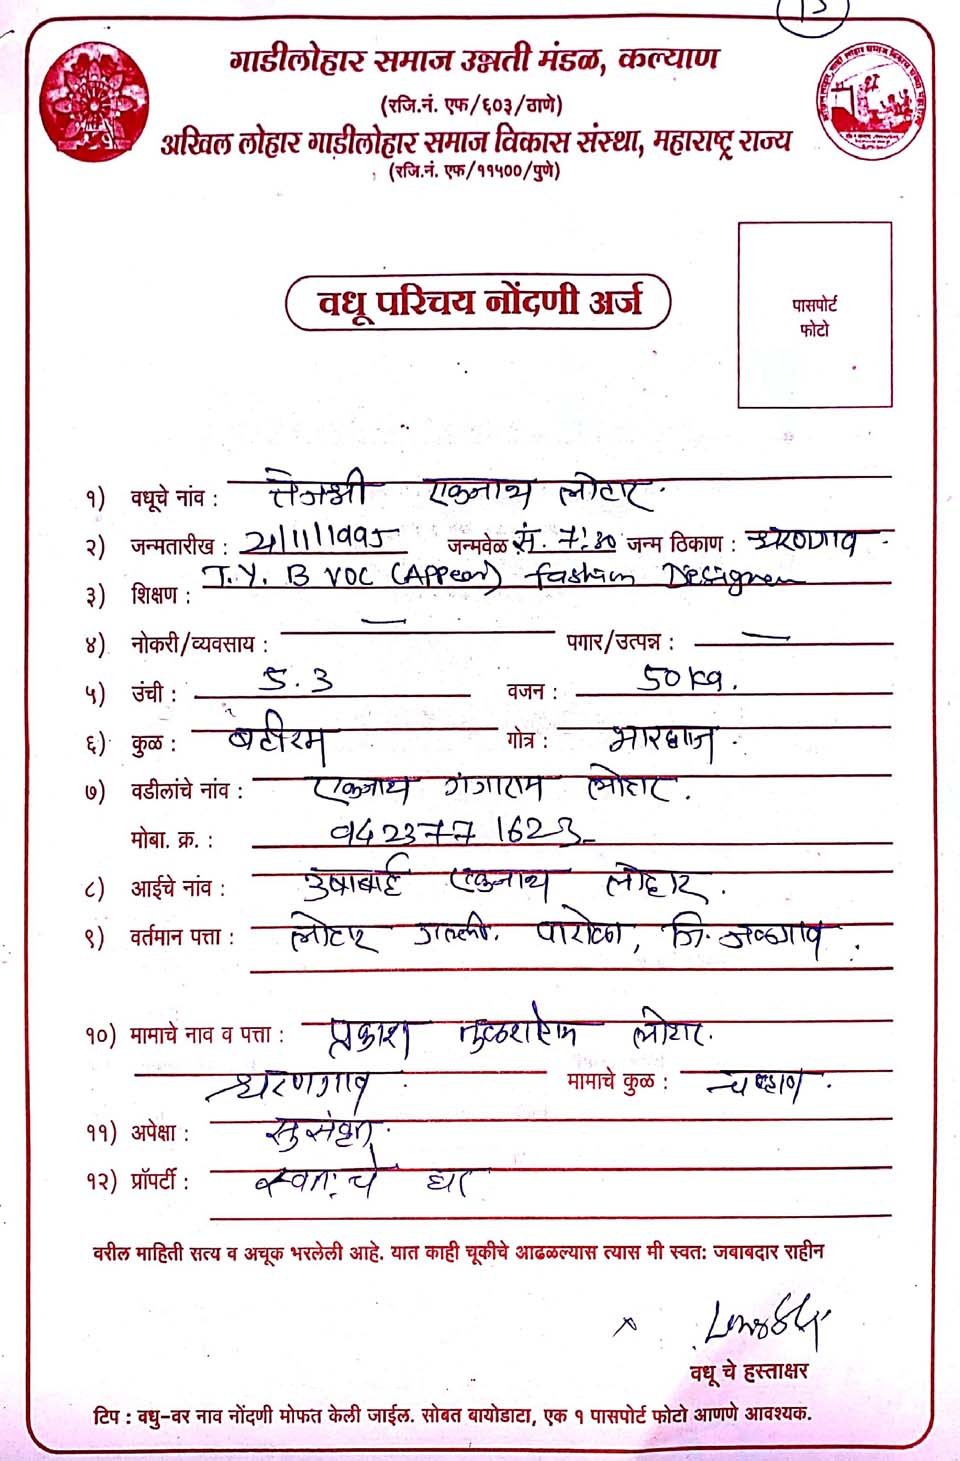 गाडीलोहार समाज उन्नती मंडळ, कल्याण
(रजि.नं. एफ/६०३/ठाणे)
अखिल लोहार गाडीलोहार समाज विकास संस्था, महाराष्ट्र राज्य
(रजि.नं. एफ/११५००/पुणे)
पासपोर्ट
फोटो
वधू परिचय नोंदणी अर्ज
१) वधूचे नांव : तेजश्री एकनाथ लोहार.
२) जन्मतारीख : 21/11/1995 जन्मवेळ सं. 7:30 जन्म ठिकाण : धरणगाव
३) शिक्षण : T.Y. B VOC (Appear) Fashion Designer
४) नोकरी/व्यवसाय : — पगार/उत्पन्न : —
५) उंची : 5.3 वजन : 50 kg.
६) कुळ : गोत्र : भारद्वाज.
७) वडीलांचे नांव : एकनाथ गंगाराम लोहार.
मोबा. क्र. : 9423771623
८) आईचे नांव : उषाबाई एकनाथ लोहार.
९) वर्तमान पत्ता : लोहार गल्ली. पारोळा, जि. जळगाव.
१०) मामाचे नाव व पत्ता : प्रकाश तुळशीराम लोहार.
धरणगाव मामाचे कुळ : चव्हाण.
११) अपेक्षा :
१२) प्रॉपर्टी : स्वतःचे घर
वरील माहिती सत्य व अचूक भरलेली आहे. यात काही चूकीचे आढळल्यास त्यास मी स्वत: जबाबदार राहीन
वधू चे हस्ताक्षर
टिप : वधु-वर नाव नोंदणी मोफत केली जाईल. सोबत बायोडाटा, एक १ पासपोर्ट फोटो आणणे आवश्यक.